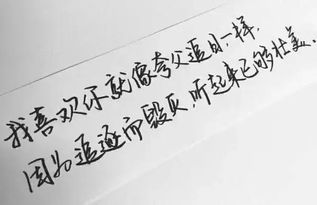 我喜欢你就像夸父追日一样,
因为追逐而毁灭,听起来已够壮美.